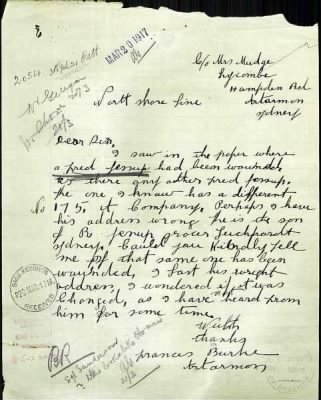 MAR 20 1917
C/o Mrs Mudge
Lycombe
Hampden Rd
Artarmon
Sydney
North Shore Line
Dear Sir.
I saw in the paper where
a Fred Jessup had been wounded
is there any other Fred Jessup.
the one I know has a different
No 175, it Company. Perhaps I have
his address wrong he is the son
of R. Jessup grocer Leichhardt
Sydney. Could you kindly tell
me if that same one has been
wounded, I lost his wright
address, I wondered if it was
changed, as I have heard from
him for some time.
With
thanks
Francis Burke
Artarmon
BASE RECORDS
RECEIVED
BR